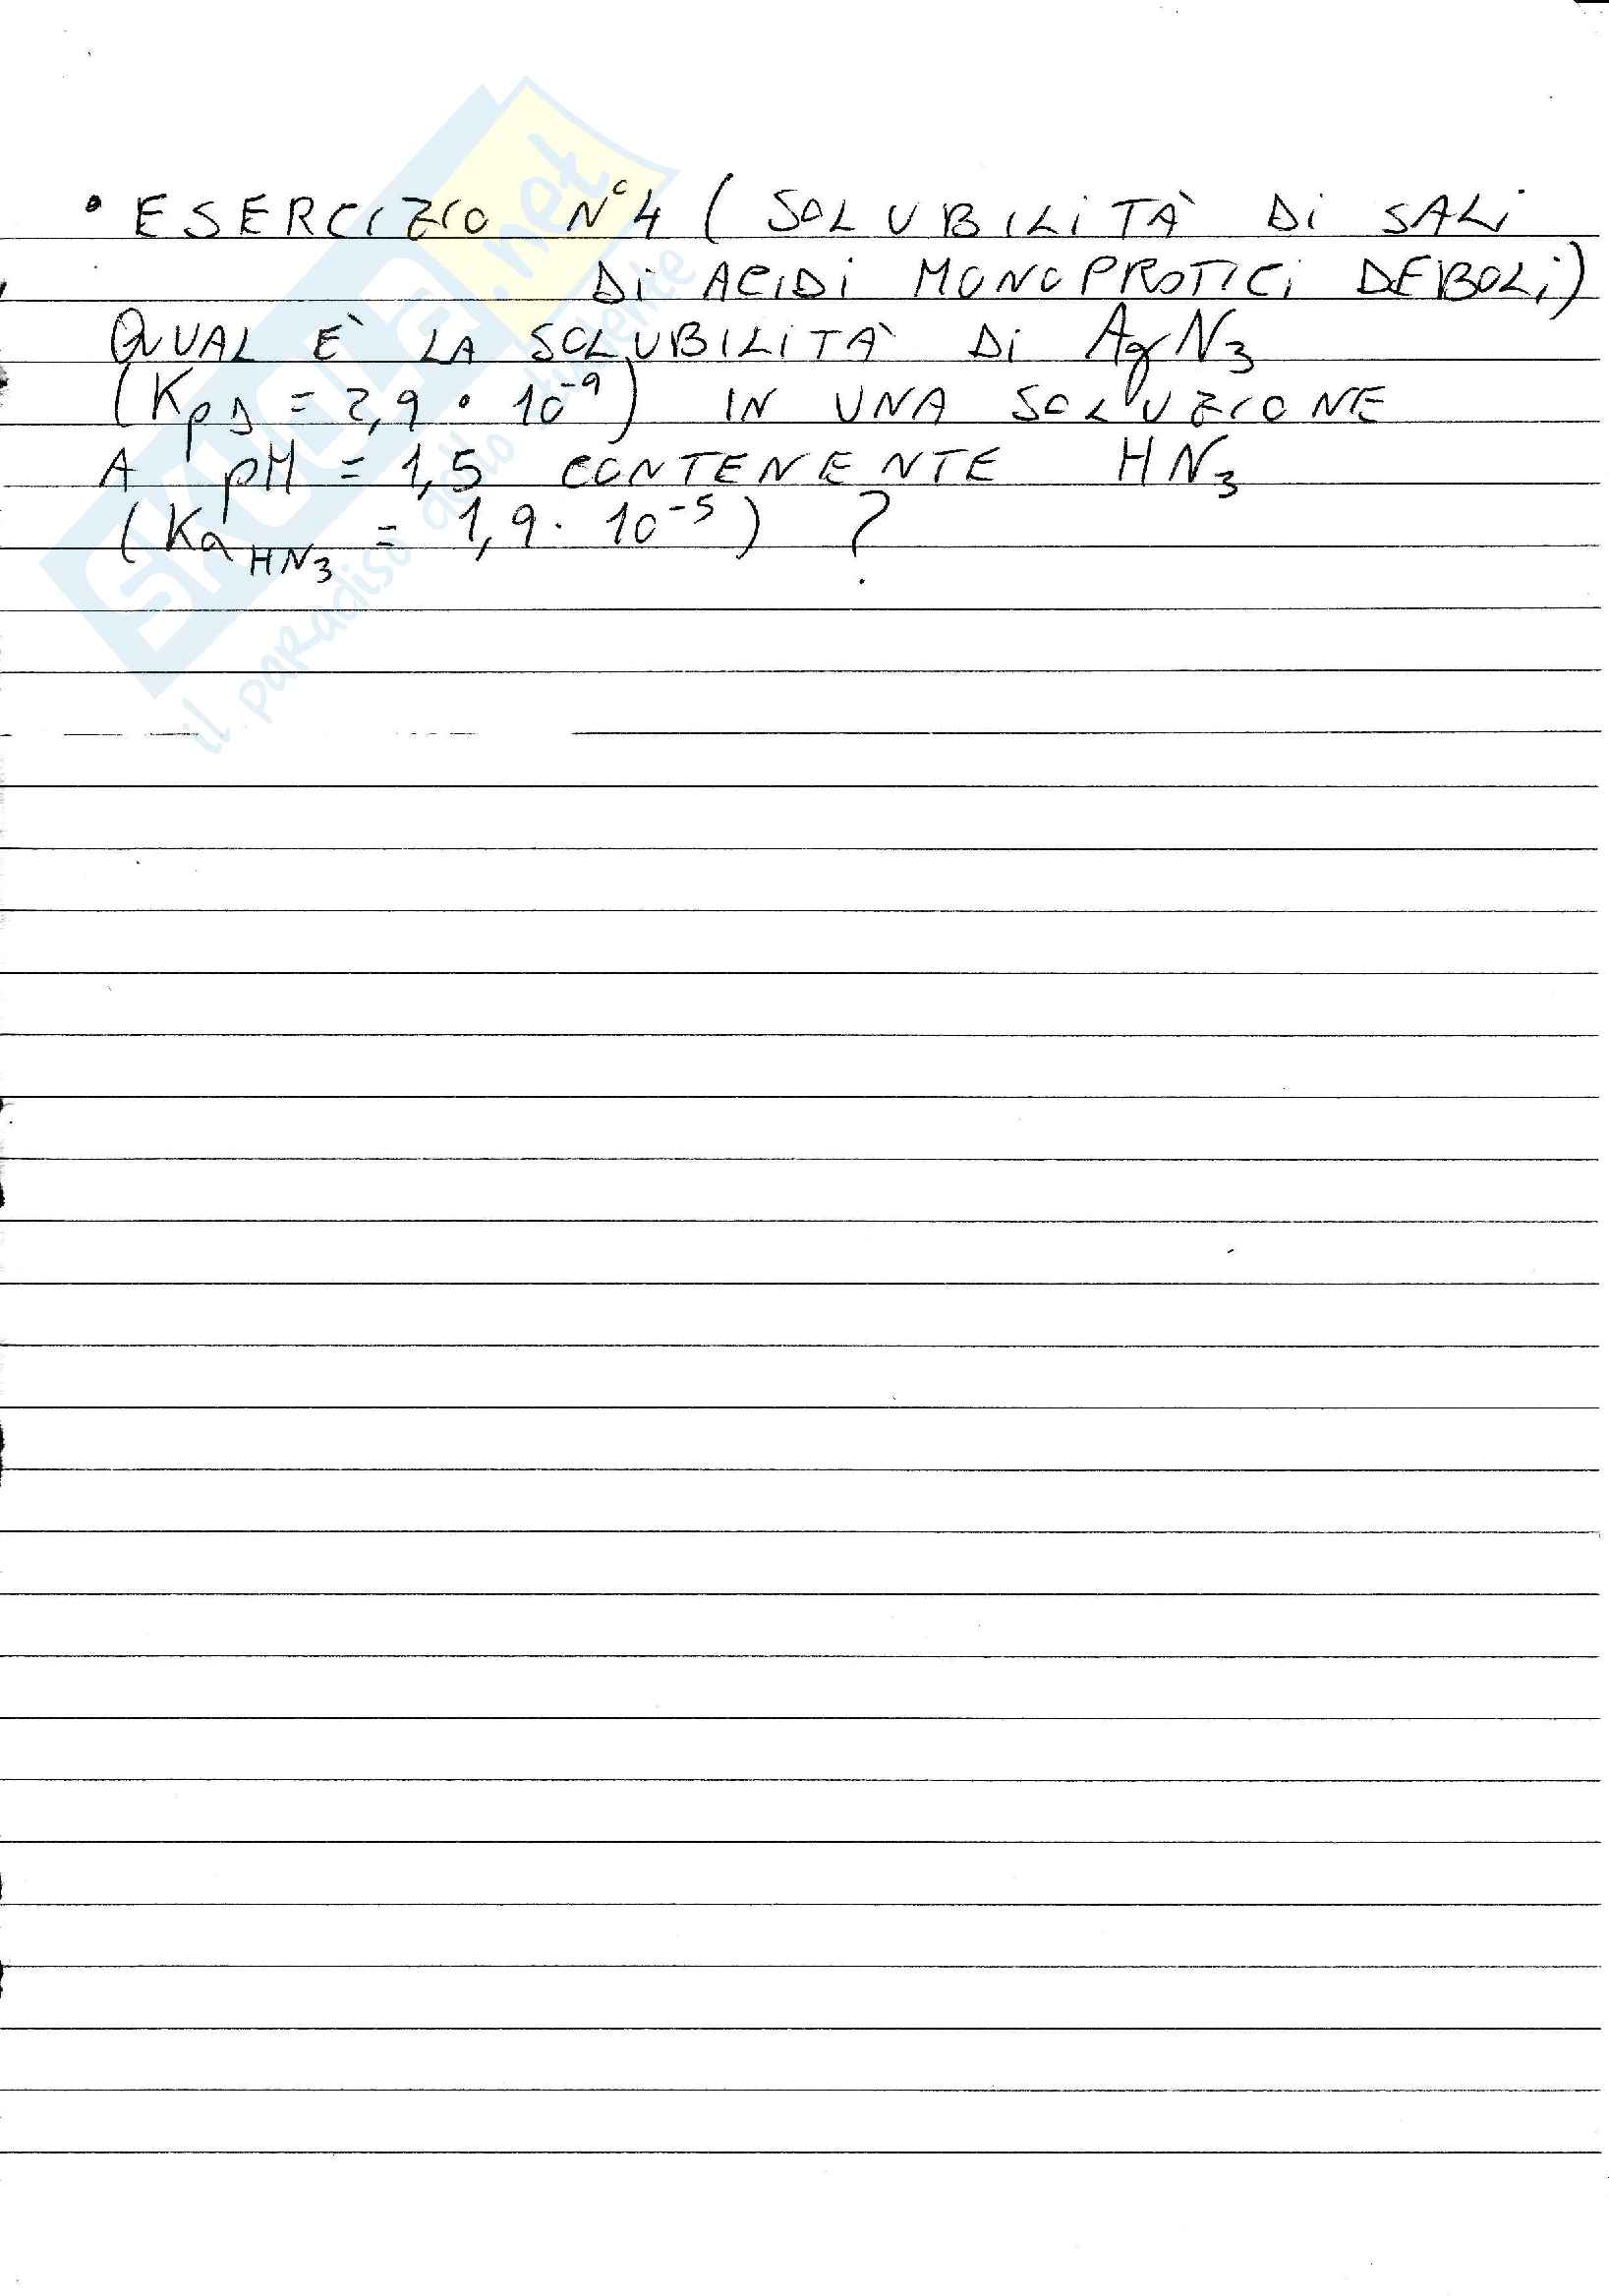 • ESERCIZIO N°4 (SOLUBILITÀ DI SALI
DI ACIDI MONOPROTICI DEBOLI)
QUAL È LA SOLUBILITÀ DI AgN3
(Kps = 2,9 • 10⁻⁹) IN UNA SOLUZIONE
A pH = 1,5 CONTENENTE HN3
(Ka HN3 = 1,9 · 10⁻⁵) ?
SKUOLA.net
il paradiso dello studente